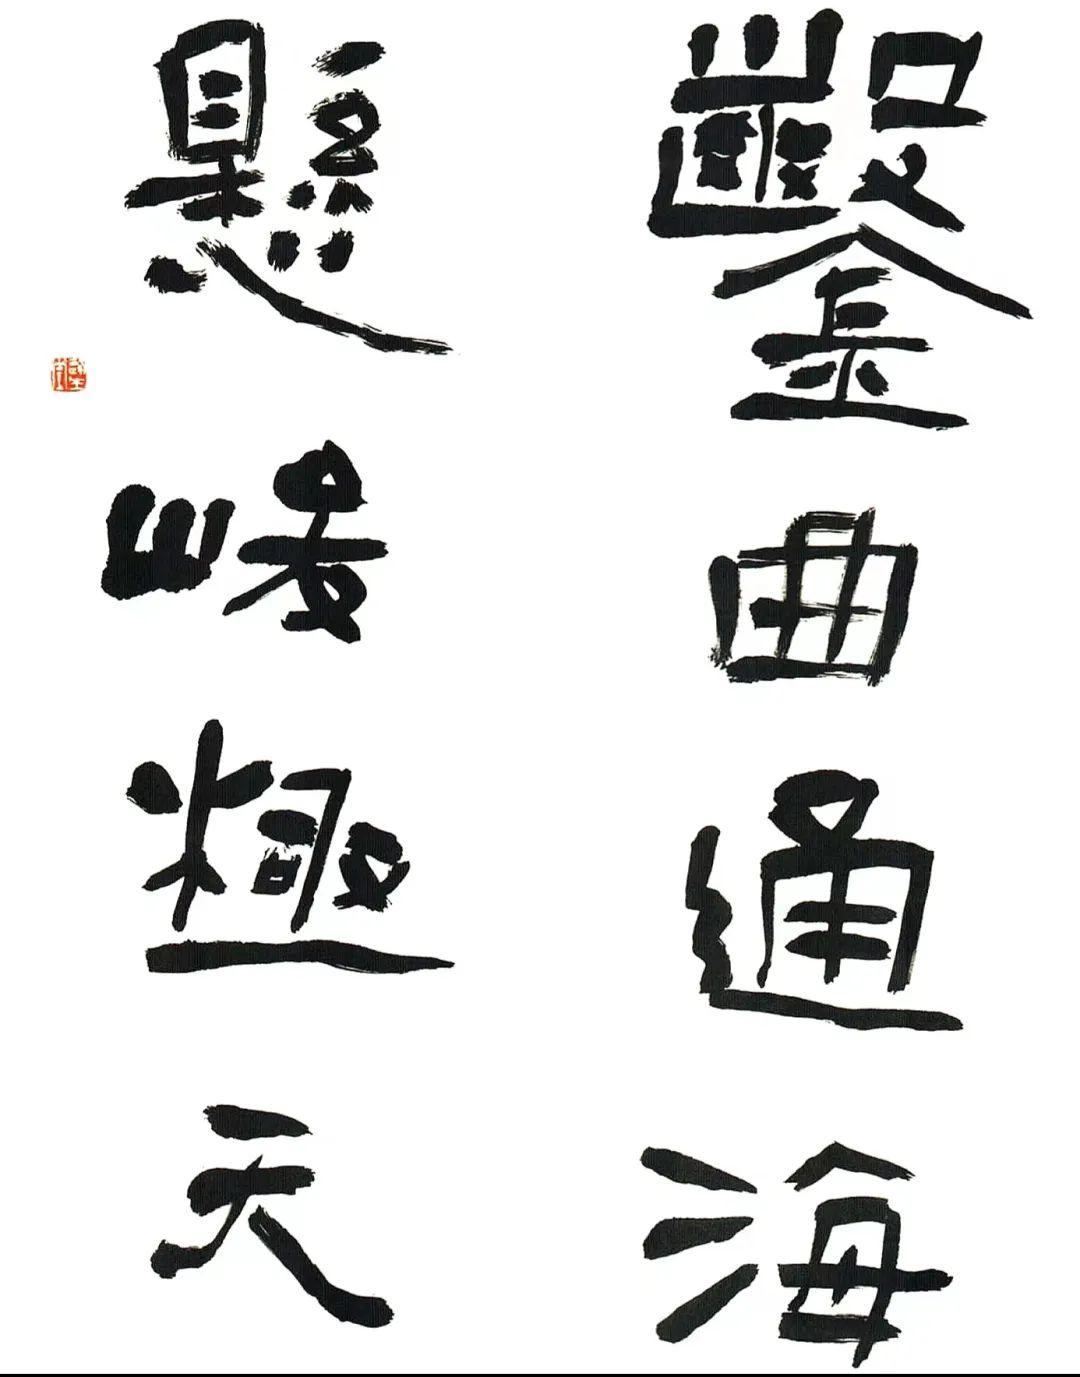 鑿曲通海
懸峻極天